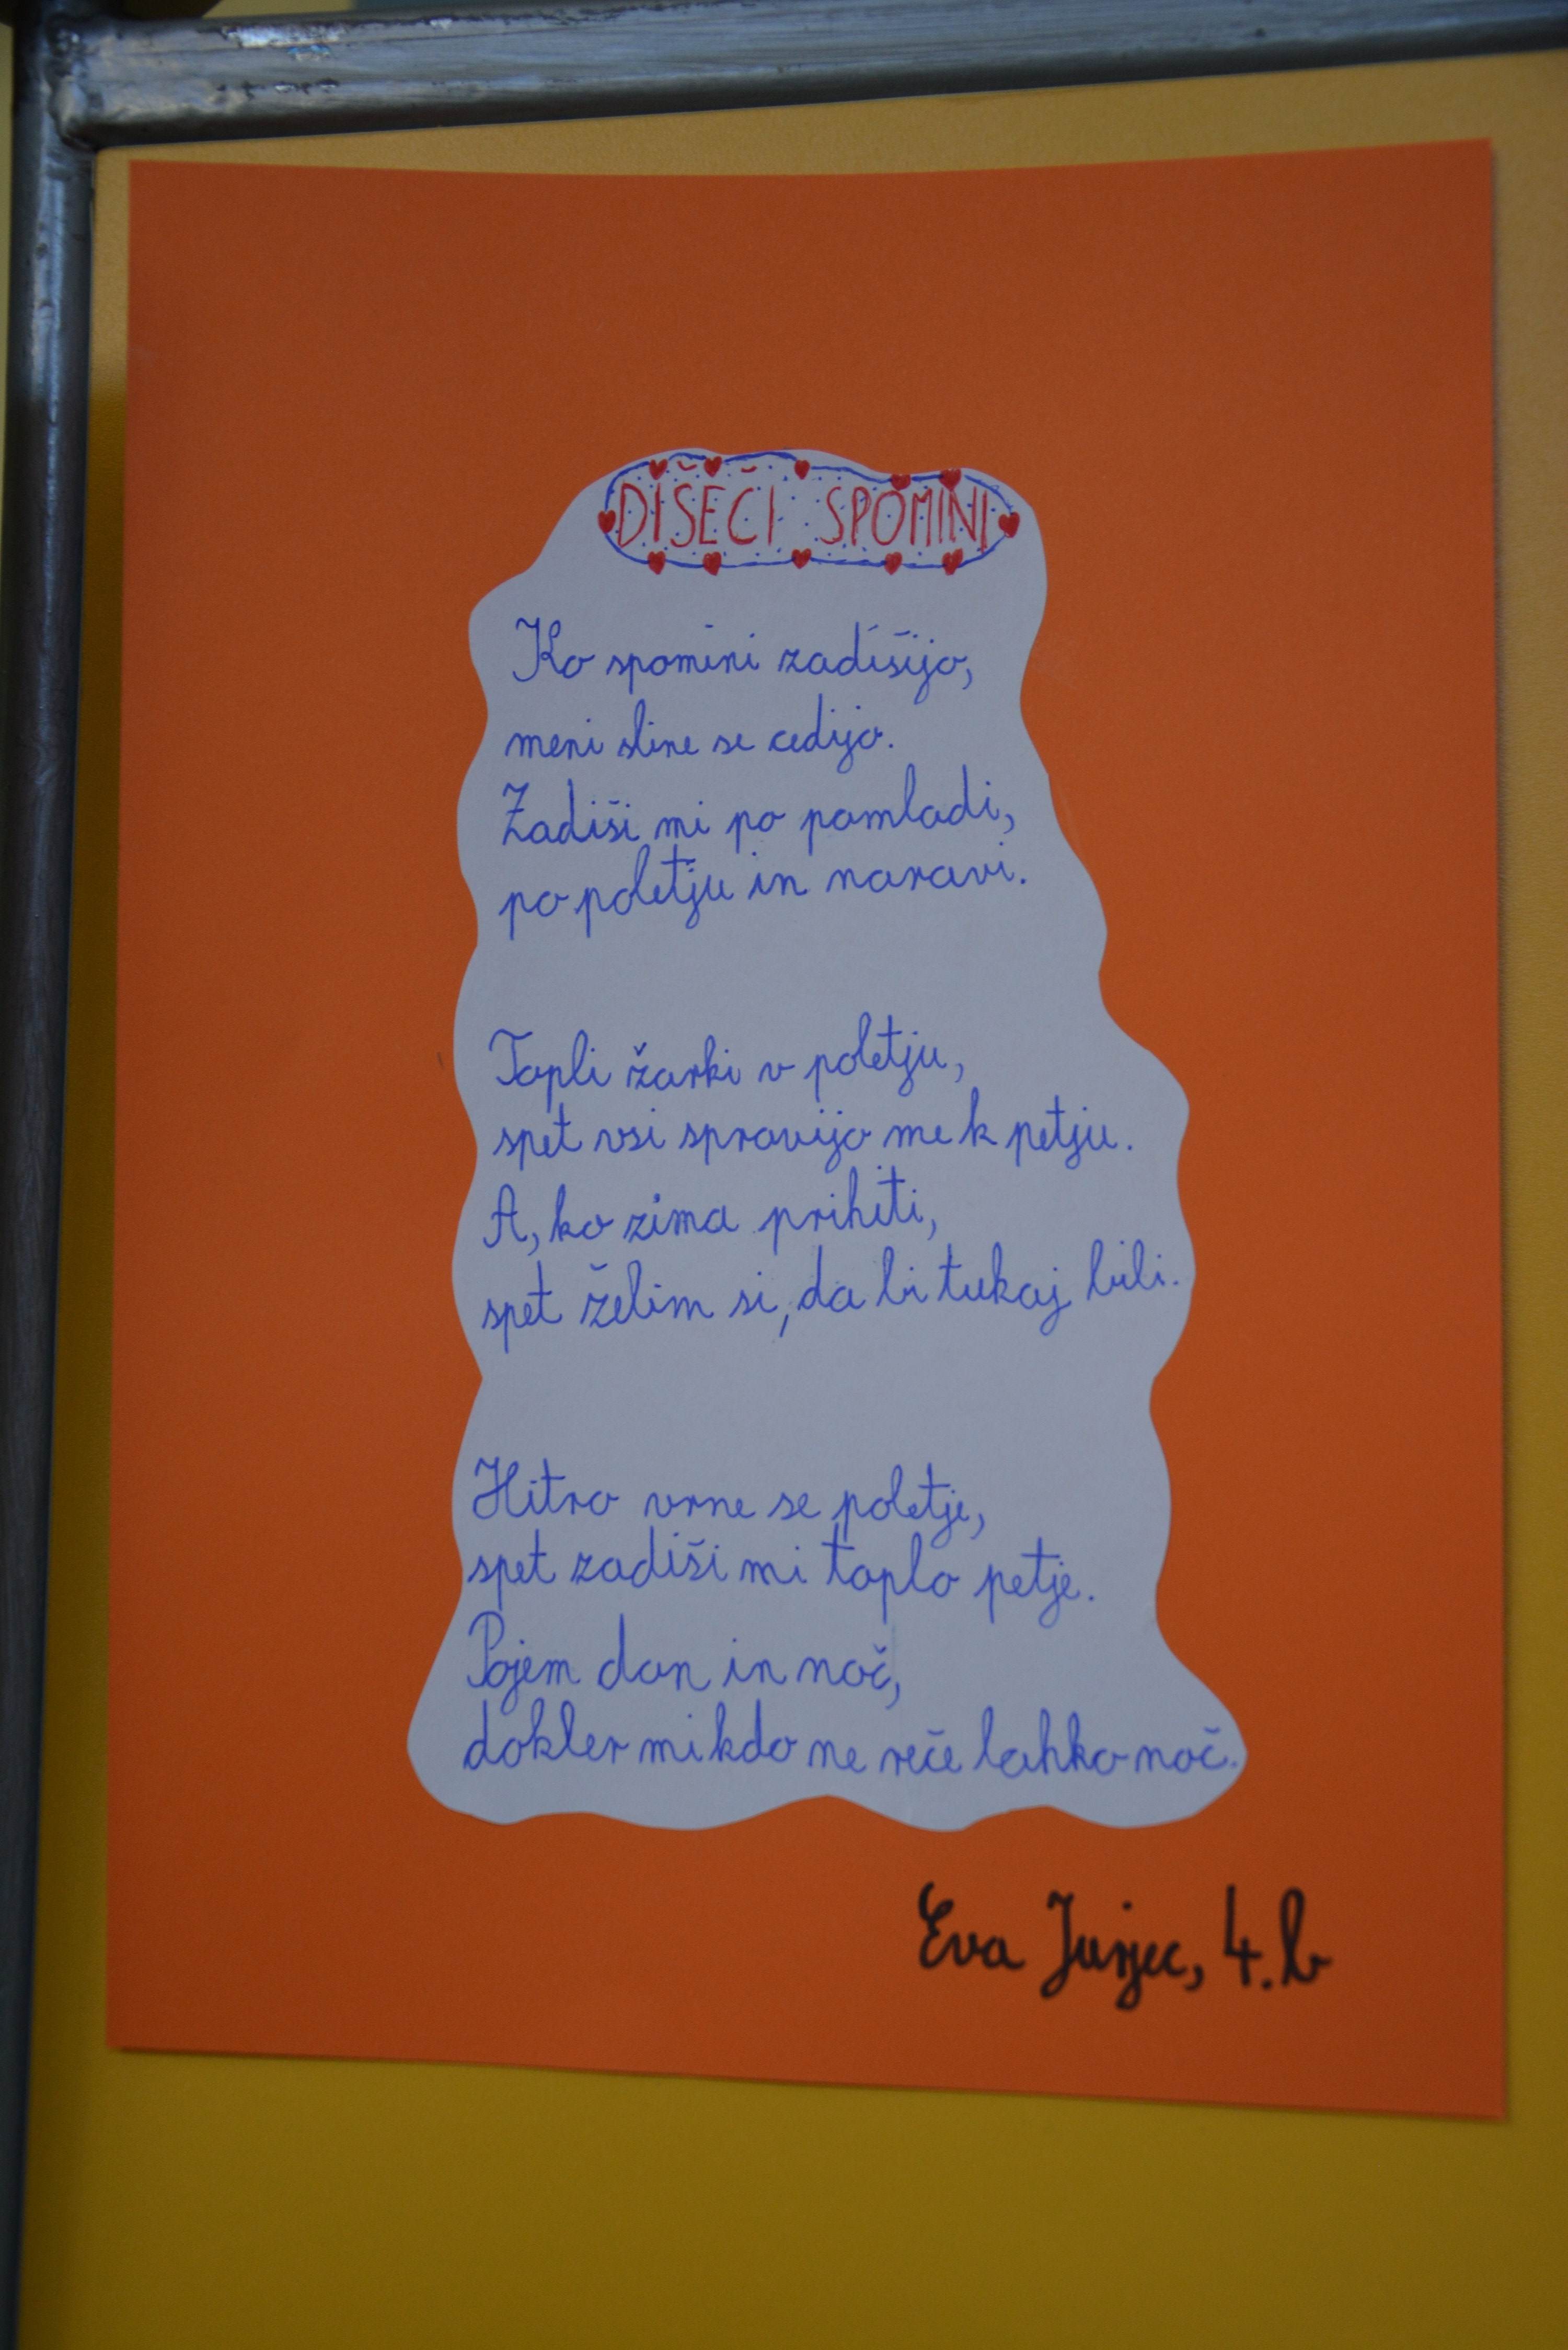 DIŠEČI SPOMINI
Ko spomini zadišijo,
meni sline se cedijo.
Zadiši mi po pomladi,
po poletju in naravi.
Topli žarki v poletju,
spet vsi spravijo me k petju.
A, ko zima prihiti,
spet želim si, da bi tukaj bili.
Hitro vrne se poletje,
spet zadiši mi toplo petje.
Pojem dan in noč,
dokler mi kdo ne reče lahko noč.
Eva Jurjec, 4.b